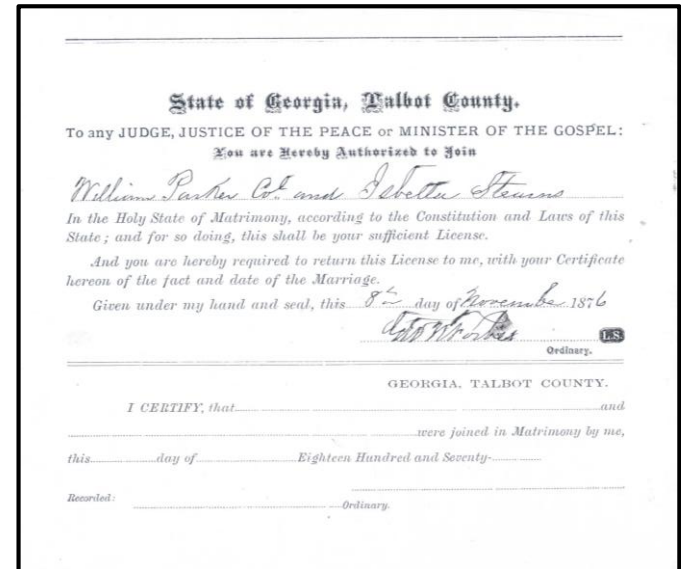 State of Georgia, Talbot County.
To any JUDGE, JUSTICE OF THE PEACE or MINISTER OF THE GOSPEL:
You are Hereby Authorized to Join
William Parker Col and Isbetta Stearns
In the Holy State of Matrimony, according to the Constitution and Laws of this
State; and for so doing, this shall be your sufficient License.
And you are hereby required to return this License to me, with your Certificate
hereon of the fact and date of the Marriage.
Given under my hand and seal, this 8th day of November 1876
L.S.
Ordinary.
GEORGIA, TALBOT COUNTY.
I CERTIFY, that and
were joined in Matrimony by me,
this day of Eighteen Hundred and Seventy-
Recorded: Ordinary.